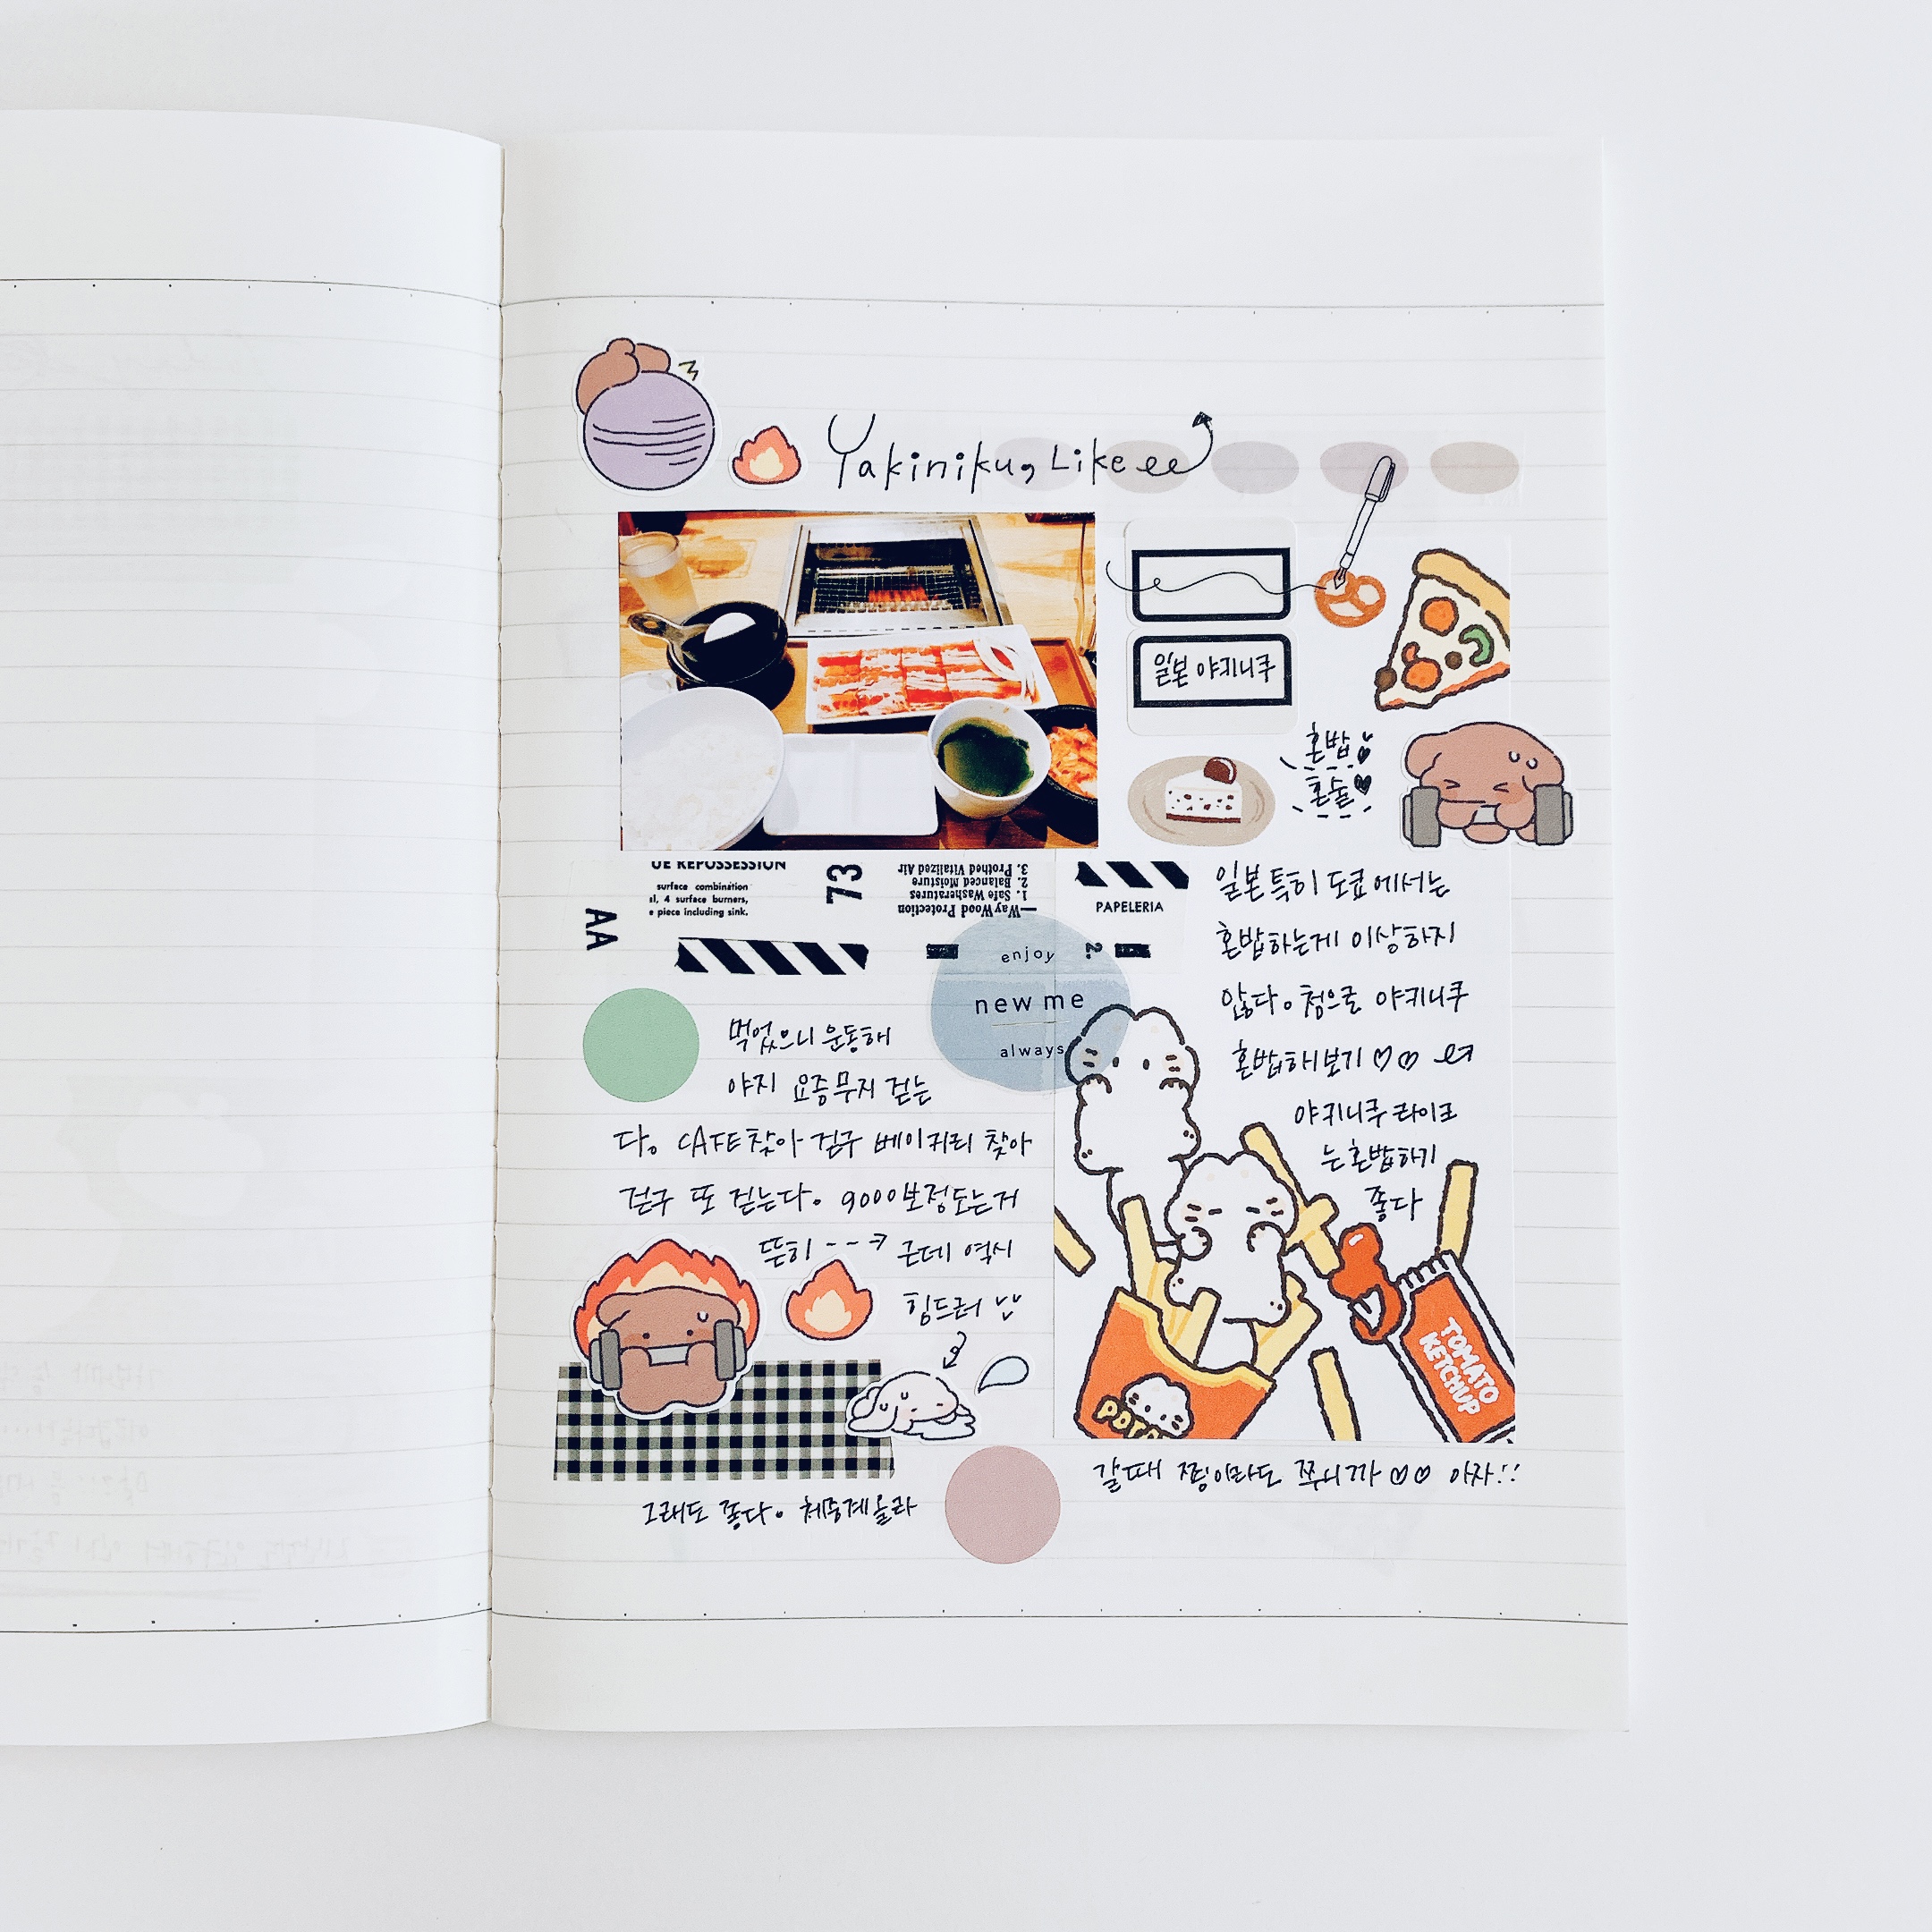 Yakiniku, Like
일본 야키니쿠
혼밥
혼술
UE REPOSSESSION
surface combination
el, 4 surface burners,
e piece including sink.
73
—WayWood Protection
1. Safe Washeratures
2. Balanced Moisture
3. Prothed Vitalized Air
AA
PAPELERIA
2.
enjoy
new me
always
일본 특히 도쿄에서는
혼밥하는게 이상하지
않다. 첨으로 야키니쿠
혼밥해보기 ♡♡
야키니쿠라이크
는 혼밥하기
좋다
먹었으니 운동해
야지 요즘 무지 걷는
다. CAFE찾아 걷구 베이커리 찾아
걷구 또 걷는다. 9000보정도는거
뜬히 --ㅋ 근데 역시
힘드러
TOMATO
KETCHUP
POTA
그래도 좋다. 체중계올라
갈때 찡이라도 쭈니까 ♡♡ 아자!!